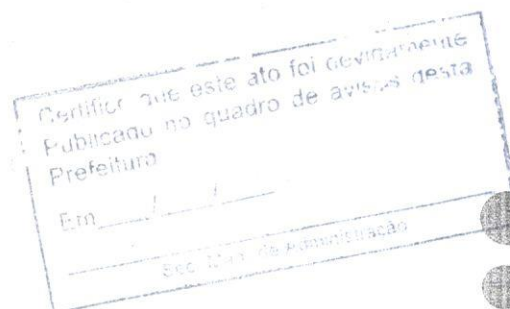 Certifico que este ato foi devidamente
Publicado no quadro de avisos desta
Prefeitura
Em / /
Sec. Mun. de Administração